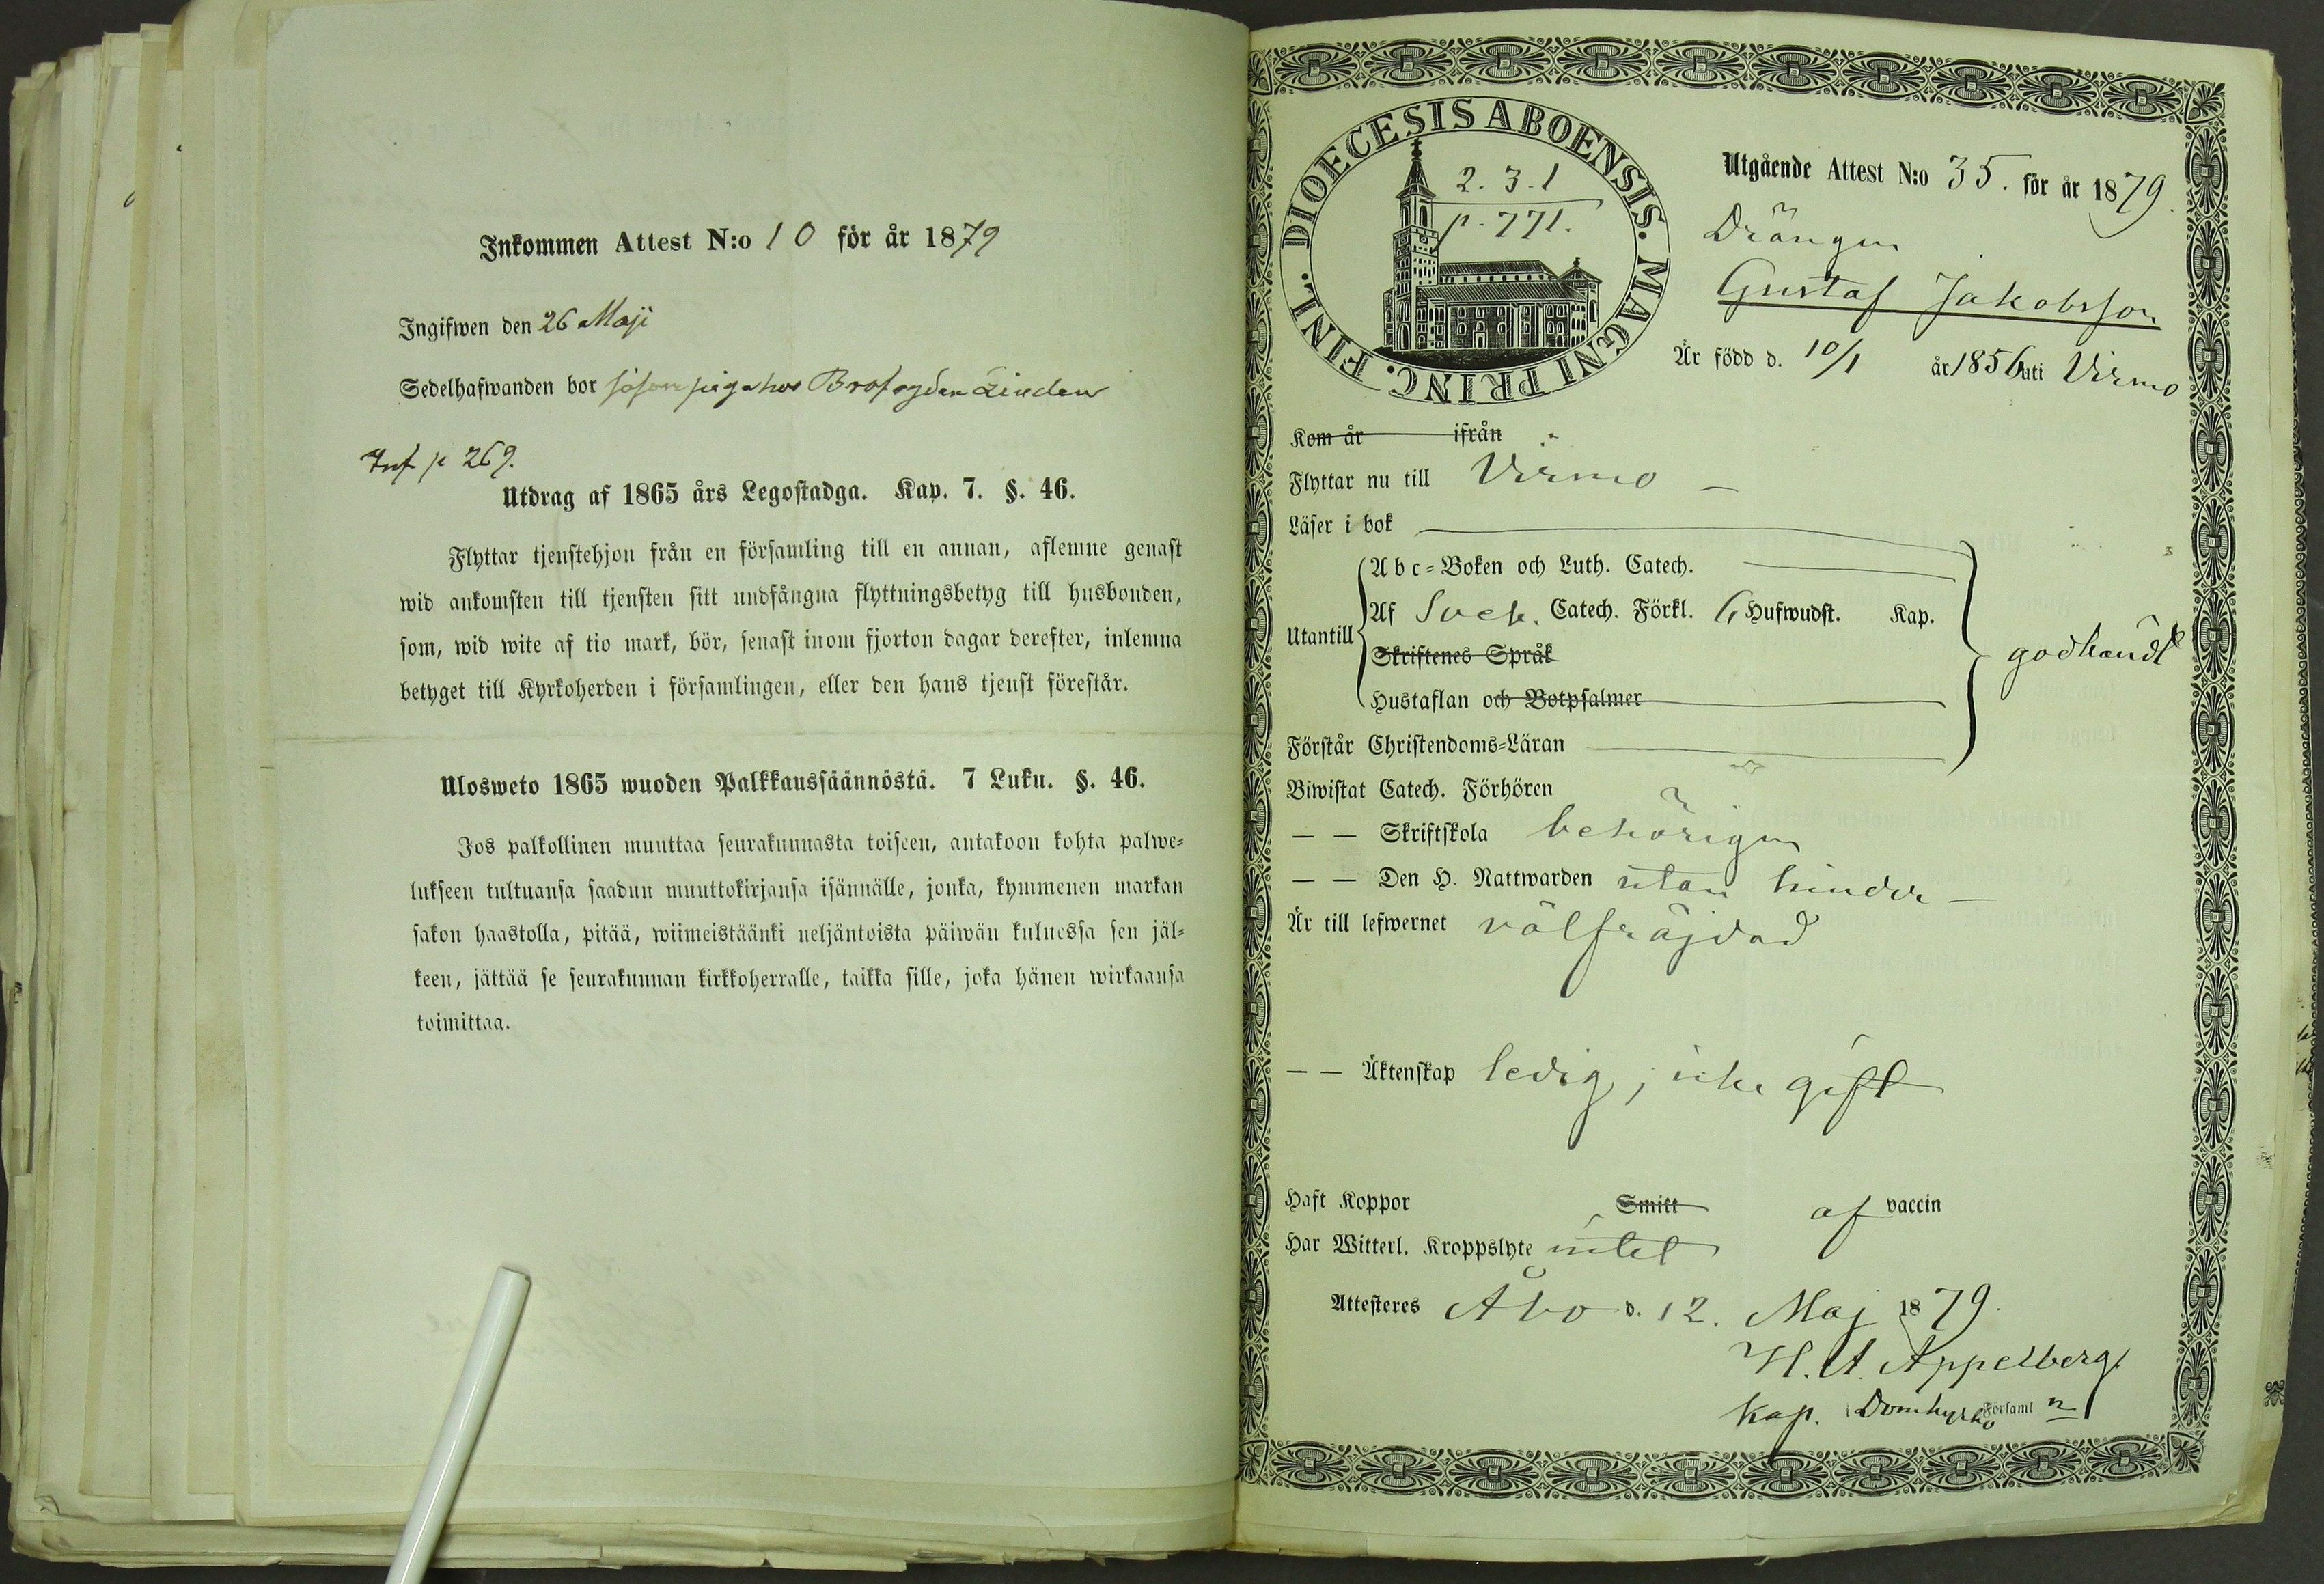 Inkommen Attest N:o 10 för år 1879
Ingifwen den 26 Maji
Sedelhafwanden bor såsom piga hos Brofogden Linden
Inf p 269.
Utdrag af 1865 års Legostadga. Kap. 7. §. 46.
Flyttar tjenstehjon från en församling till en annan, aflemne genast
wid ankomsten till tjensten sitt undfångna flyttningsbetyg till husbonden,
som, wid wite af tio mark, bör, senast inom fjorton dagar derefter, inlemna
betyget till Kyrkoherden i församlingen, eller den hans tjenst förestår.
Ulosweto 1865 wuoden Palkkaussäännöstä. 7 Luku. §. 46.
Jos palkollinen muuttaa seurakunnasta toiseen, antakoon kohta palwe=
lukseen tultuansa saadun muuttokirjansa isännälle, jonka, kymmenen markan
sakon haastolla, pitää, wiimeistäänki neljäntoista päiwän kuluessa sen jäl=
keen, jättää se seurakunnan kirkkoherralle, taikka sille, joka hänen wirkaansa
toimittaa.
DIOECESIS ABOENSIS. MAGNI PRINC. FINL.
2. 3. 1
p. 771.
Utgående Attest N:o 35. för år 1879.
Drängen
Gustaf Jakobsson
Är född d. 10/1 år 1856 uti Virmo
Kom år ifrån
Flyttar nu till Virmo –
Läser i bok
Utantill
Abc=Boken och Luth. Catech.
Af Sveb. Catech. Förkl. 6 Hufwudst. Kap.
Skriftenes Språk
Hustaflan och Botpsalmer
godkändt
Förstår Christendoms=Läran
Biwistat Catech. Förhören
– – Skriftskola behörigen
– – Den H. Nattwarden utan hinder –
Är till lefwernet välfräjdad
– – Äktenskap ledig, icke gift
Haft Koppor Smitt af vaccin
Har Witterl. Kroppslyte intet
Attesteres Åbo d. 12. Maj 1879.
H. A. Appelberg
Kap. i Domkyrko Församl n